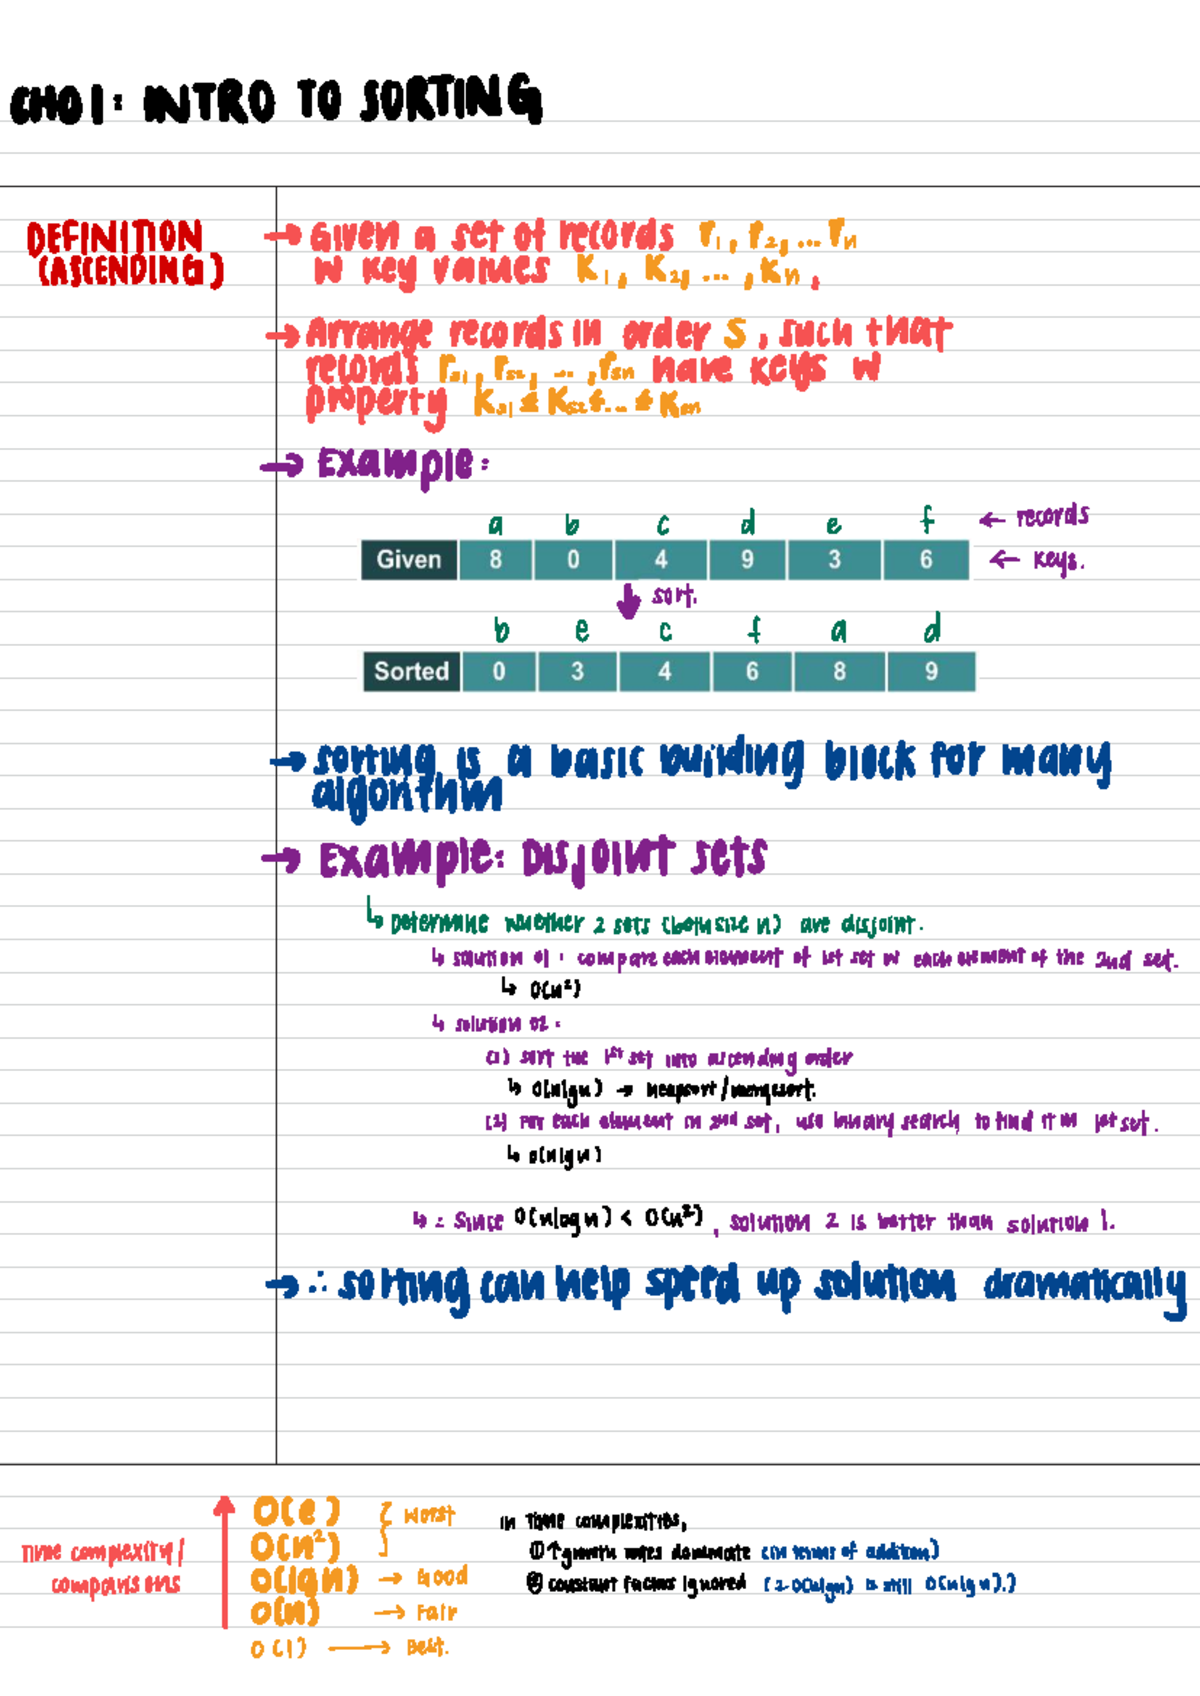 CH01: INTRO TO SORTING
DEFINITION
(ASCENDING)
→ Given a set of records r₁, r₂, ... rₙ
w key values K₁, K₂, ..., Kₙ,
→ Arrange records in order S, such that
records rₛ₁, rₛ₂, ..., rₛₙ have keys w
property Kₛ₁ ≤ Kₛ₂ ≤ ... ≤ Kₛₙ
→ Example:
a b c d e f ← records
Given 8 0 4 9 3 6 ← keys.
↓ sort.
b e c f a d
Sorted 0 3 4 6 8 9
→ sorting is a basic building block for many
algorithm
→ Example: Disjoint sets
↳ Determine whether 2 sets (both size n) are disjoint.
↳ solution 01: compare each element of 1st set w each element of the 2nd set.
↳ O(n²)
↳ solution 02:
(1) sort the 1st set into ascending order
↳ O(nlgn) → heapsort/mergesort.
(2) For each element in 2nd set, use binary search to find it in 1st set.
↳ O(nlgn)
↳ : Since O(nlogn) < O(n²), solution 2 is better than solution 1.
→ ∴ sorting can help speed up solution dramatically
Time complexity/
comparisons
O(e) } Worst
O(n²)
O(lgn) → Good
O(n) → Fair
O(1) → Best.
in Time complexities,
① ↑ growth rates dominate (in terms of addition)
② constant factors ignored (2·O(nlgn) is still O(nlgn).)